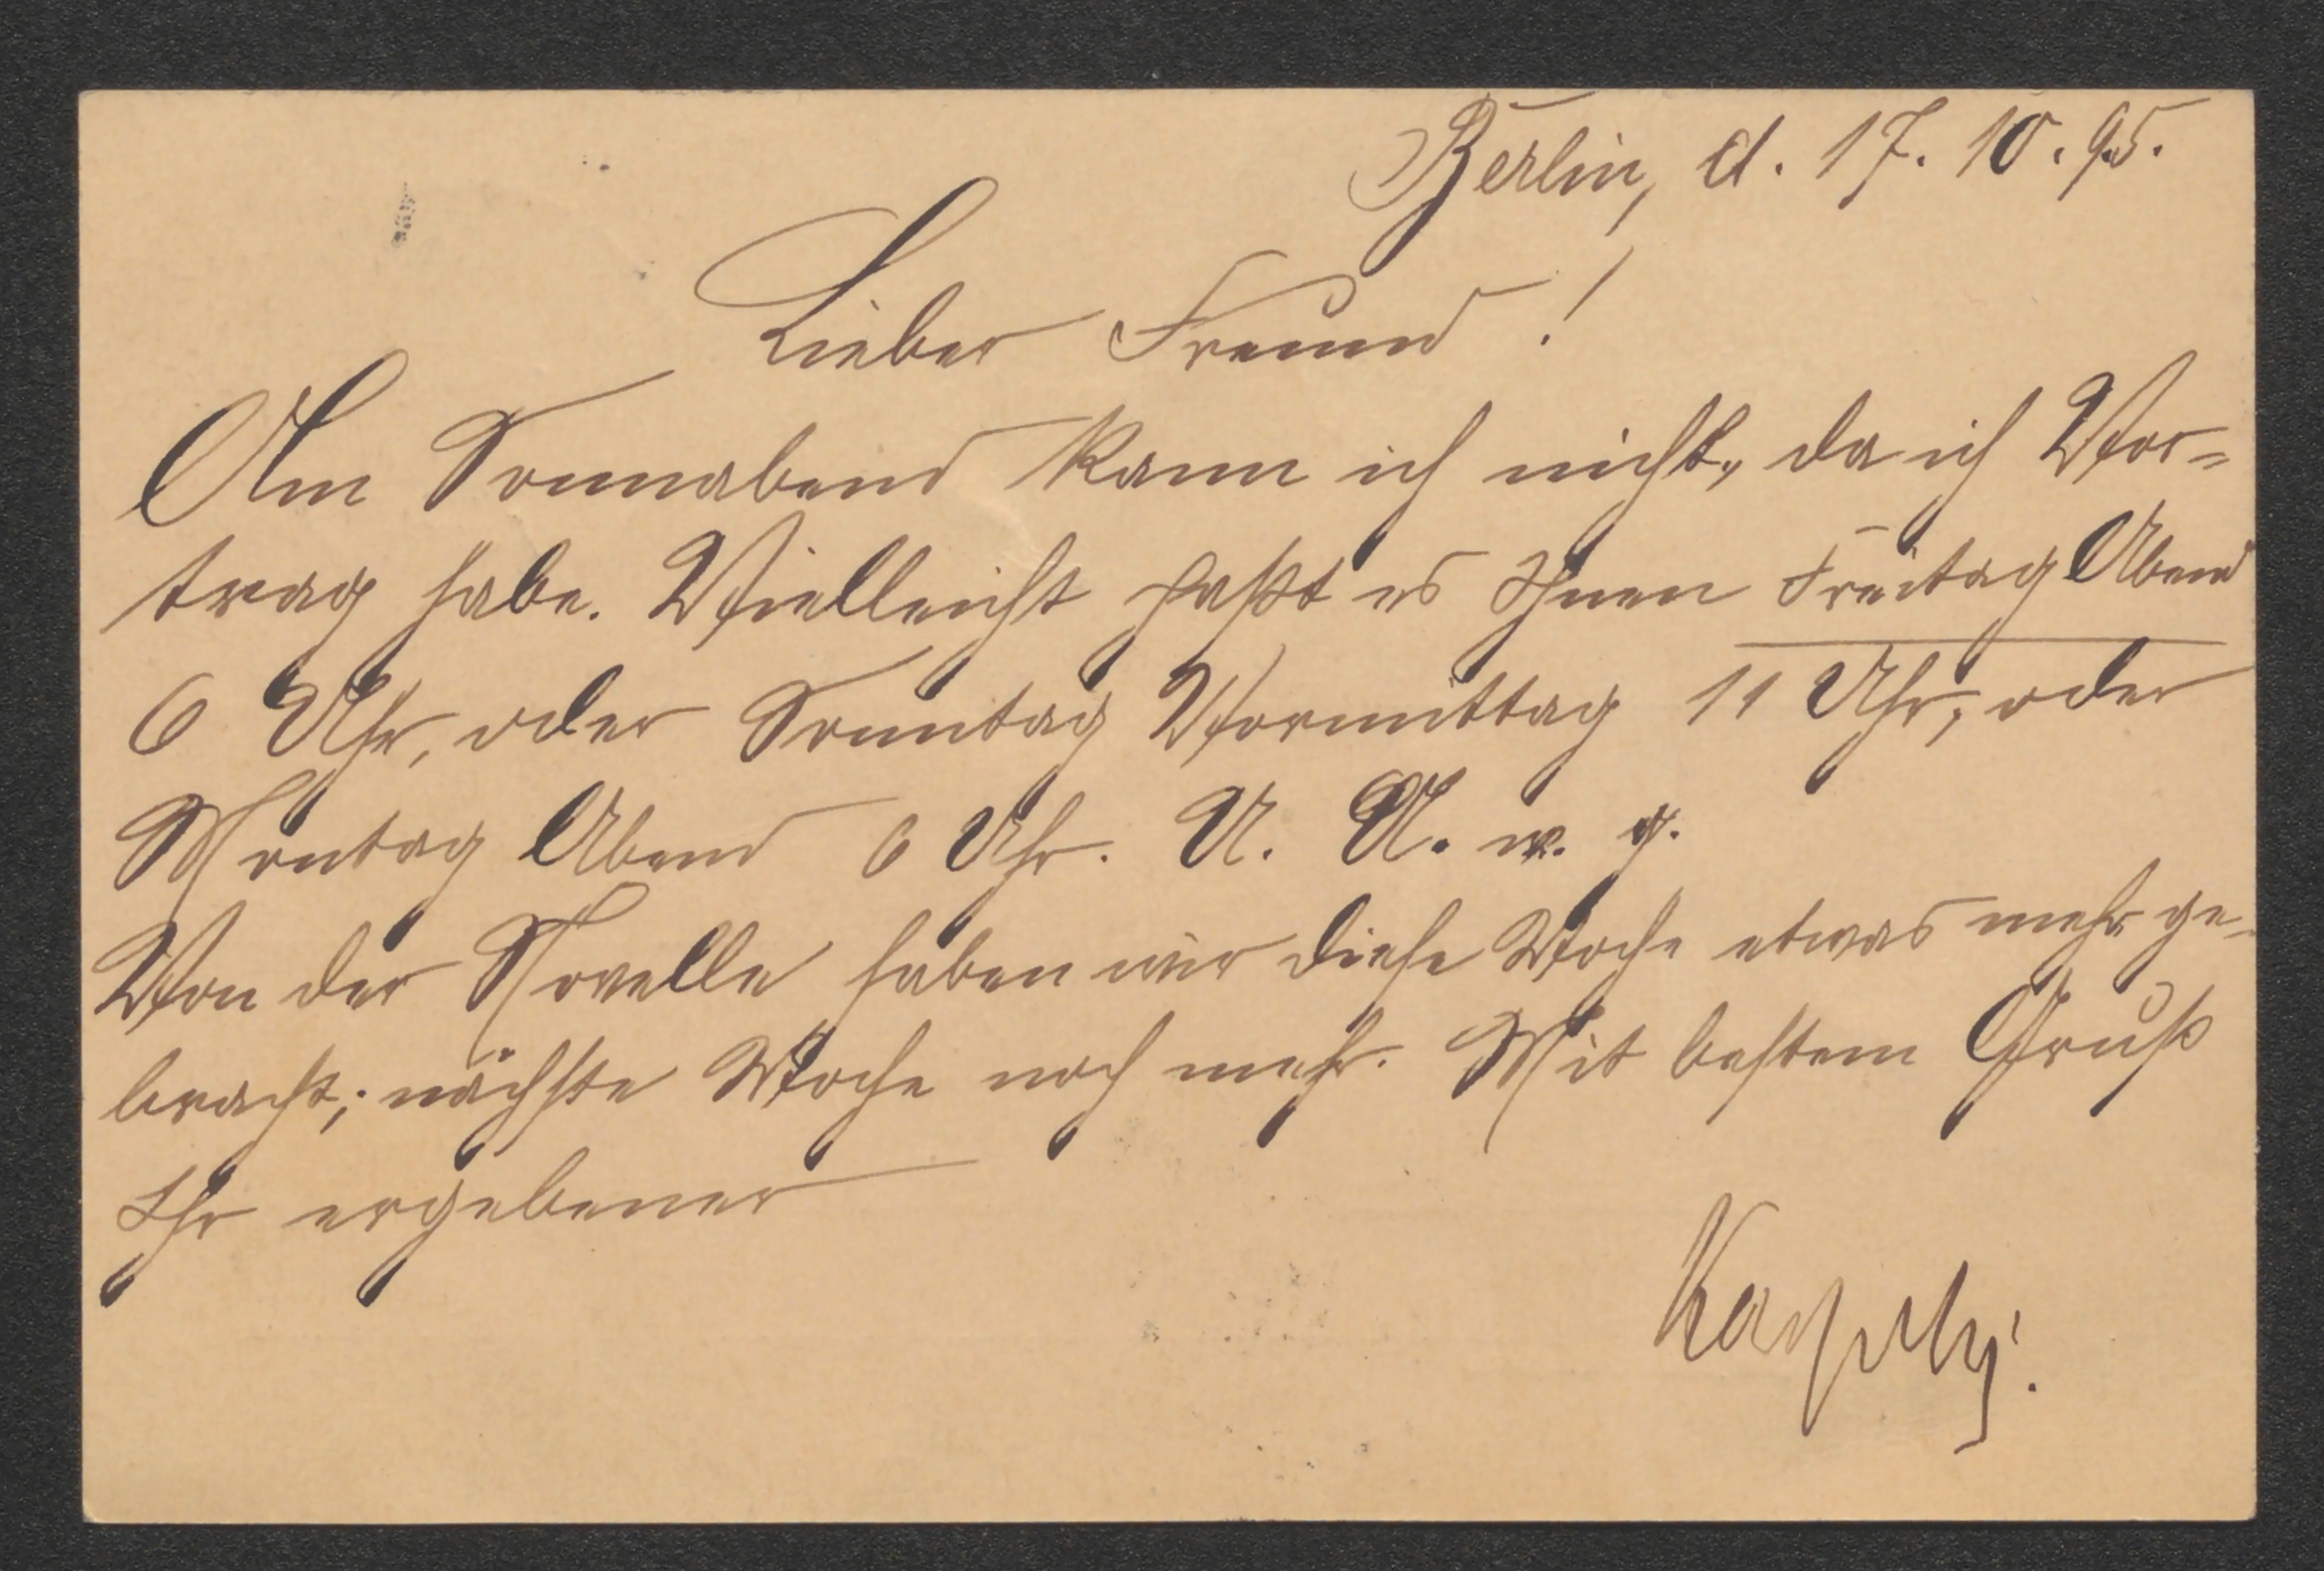 Berlin, d. 17. 10. 95.
Lieber Freund!
Am Sonnabend kann ich nicht, da ich Vor-
trag habe. Vielleicht paßt es Ihnen Freitag Abend
6 Uhr, oder Sonntag Vormittag 11 Uhr, oder
Montag Abend 6 Uhr. U. A. w. g.
Von der Novelle haben wir diese Woche etwas mehr ge-
bracht; nächste Woche noch mehr. Mit bestem Gruß
Ihr ergebener